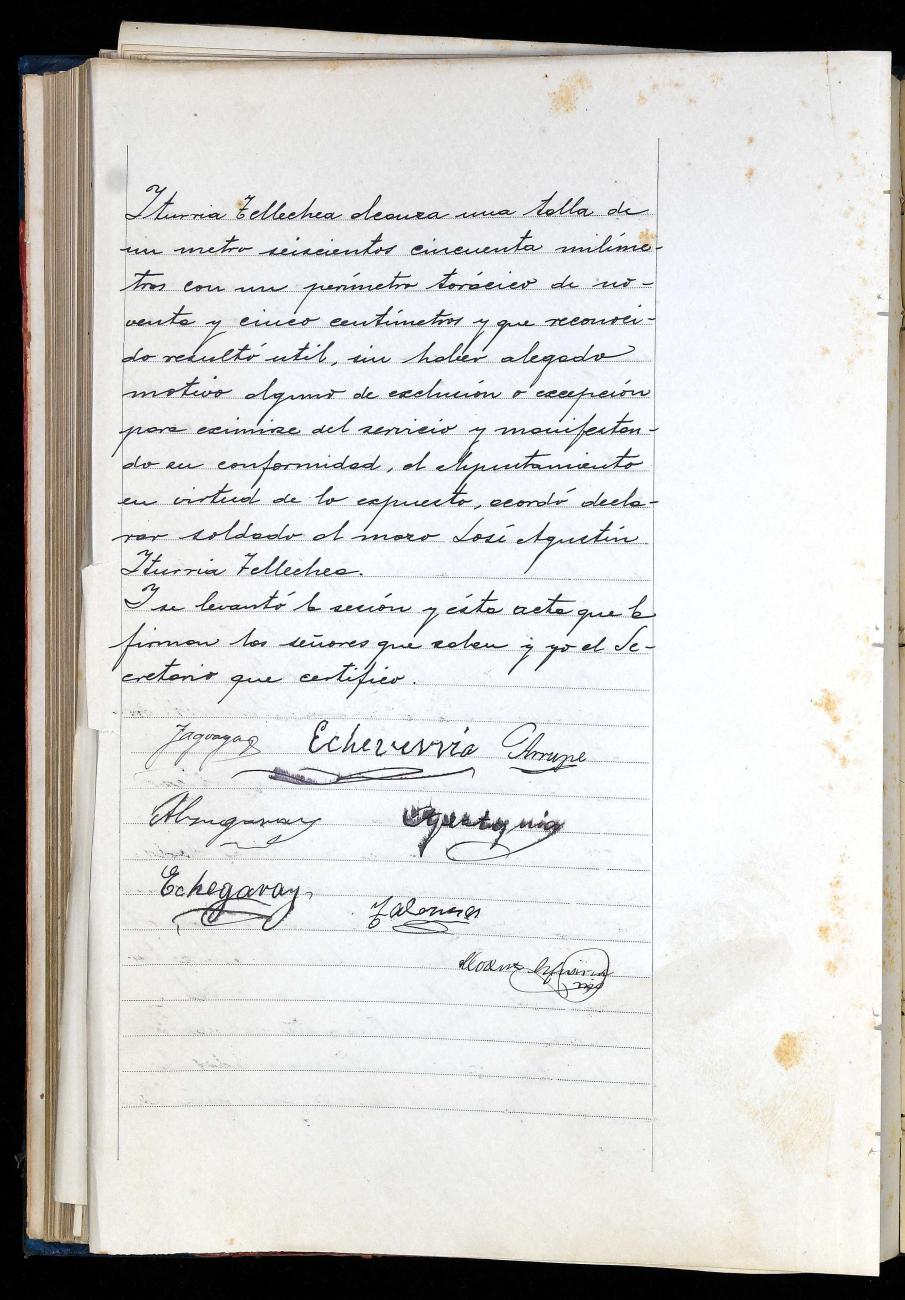 Iturria Tellechea alcanza una talla de
un metro seiscientos cincuenta milíme-
tros con un perímetro torácico de no-
venta y cinco centímetros y que reconoci-
do resultó util, sin haber alegado
motivo alguno de exclusión o excepción
para eximirse del servicio y manifestan-
do en conformidad, el Ayuntamiento
en virtud de lo expuesto, acordó decla-
rar soldado al mozo José Agustín
Iturria Tellechea.
Y se levantó la sesión y ésta acta que la
firman los señores que saben y yo el Se-
cretario que certifico.
Echeverria Arrupe
Echegaray